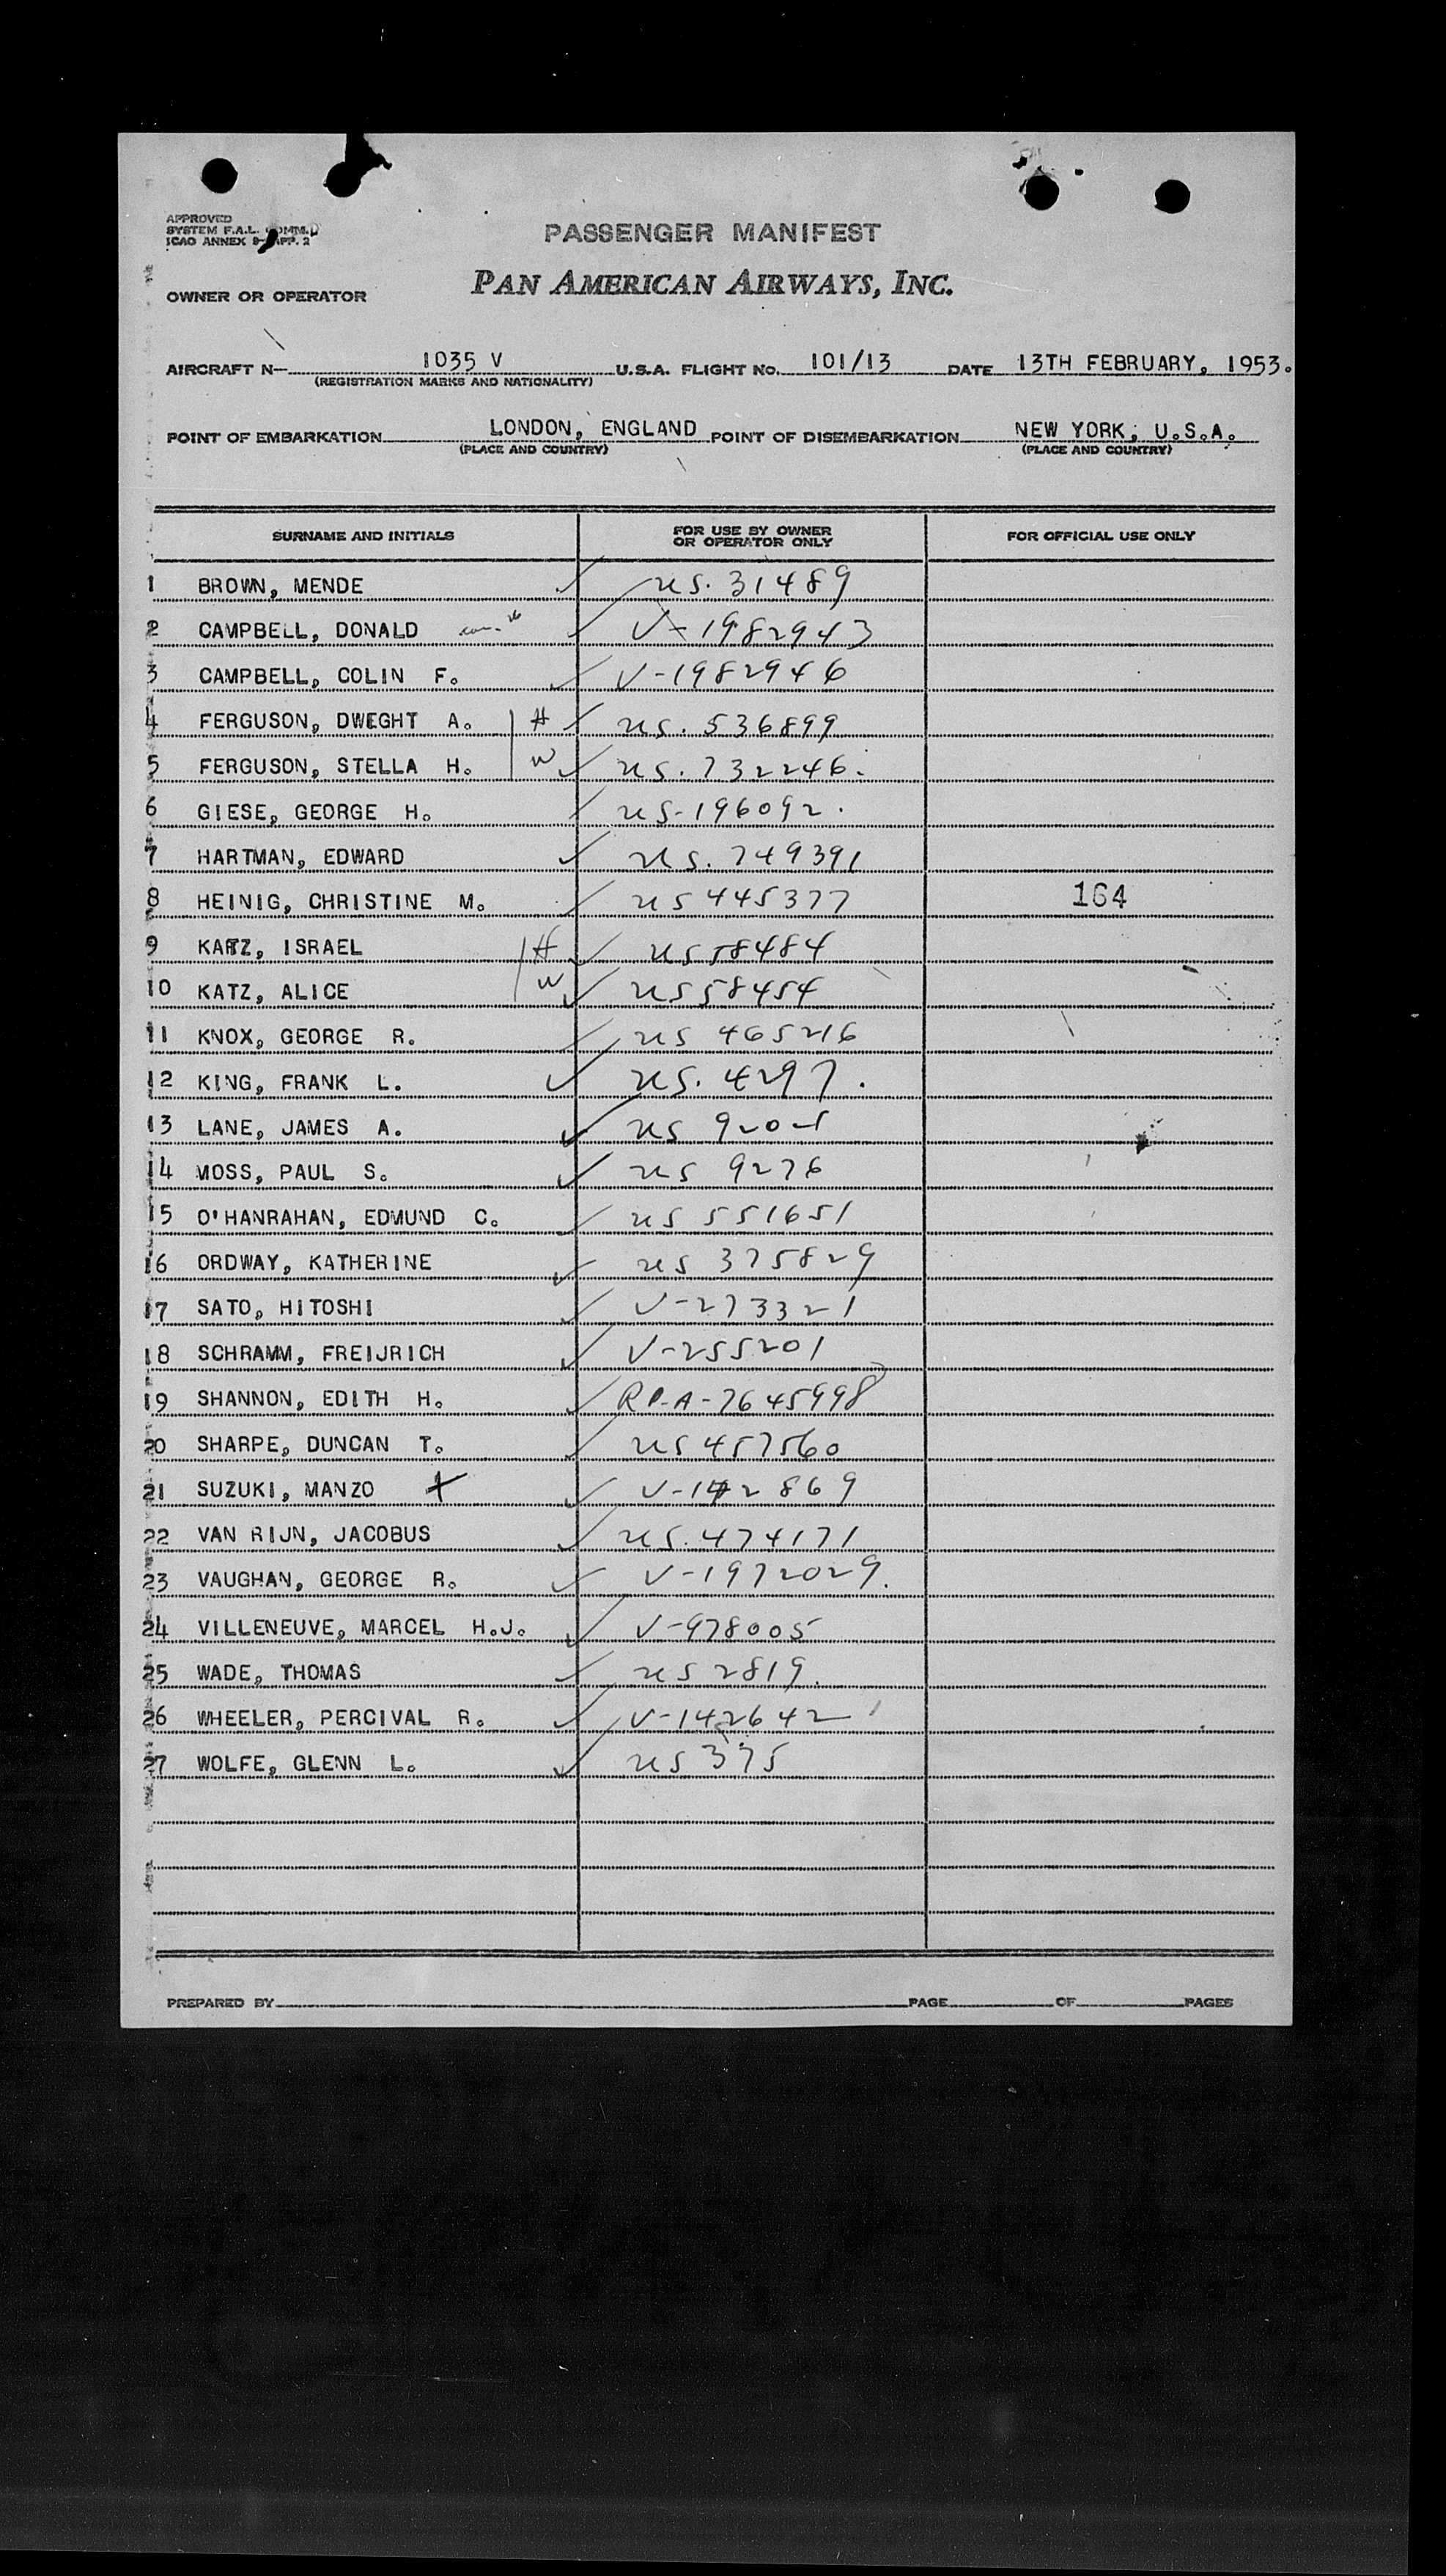 APPROVED
SYSTEM F.A.L. COMM.
ICAO ANNEX 9- APP. 2
PASSENGER MANIFEST
PAN AMERICAN AIRWAYS, INC.
OWNER OR OPERATOR
AIRCRAFT N- 1035 V U.S.A. FLIGHT No. 101/13 DATE 13TH FEBRUARY, 1953.
(REGISTRATION MARKS AND NATIONALITY)
POINT OF EMBARKATION LONDON, ENGLAND POINT OF DISEMBARKATION NEW YORK, U.S.A.
(PLACE AND COUNTRY) (PLACE AND COUNTRY)
SURNAME AND INITIALS FOR USE BY OWNER OR OPERATOR ONLY FOR OFFICIAL USE ONLY
1 BROWN, MENDE ✓ US. 31489
2 CAMPBELL, DONALD ✓ V-1982943
3 CAMPBELL, COLIN F. ✓ V-1982946
4 FERGUSON, DWEGHT A. H ✓ US. 536899
5 FERGUSON, STELLA H. W ✓ US. 732246.
6 GIESE, GEORGE H. ✓ US-196092.
7 HARTMAN, EDWARD ✓ US. 749391
8 HEINIG, CHRISTINE M. ✓ US 445377 164
9 KATZ, ISRAEL H ✓ US 58484
10 KATZ, ALICE W ✓ US 58454
11 KNOX, GEORGE R. ✓ US 465216
12 KING, FRANK L. ✓ US. 4297.
13 LANE, JAMES A. ✓ US
14 MOSS, PAUL S. ✓ US 9276
15 O'HANRAHAN, EDMUND C. ✓ US 551651
16 ORDWAY, KATHERINE ✓ US 375829
17 SATO, HITOSHI ✓ V-273321
18 SCHRAMM, FREIJRICH ✓ V-255201
19 SHANNON, EDITH H. ✓ RP-A-7645998
20 SHARPE, DUNCAN T. ✓ US 457560
21 SUZUKI, MANZO X ✓ V-142869
22 VAN RIJN, JACOBUS ✓ US. 474171
23 VAUGHAN, GEORGE R. ✓ V-1972029.
24 VILLENEUVE, MARCEL H.J. ✓ V-978005
25 WADE, THOMAS ✓ US 2819.
26 WHEELER, PERCIVAL R. ✓ V-142642
27 WOLFE, GLENN L. ✓ US 375
PREPARED BY PAGE OF PAGES